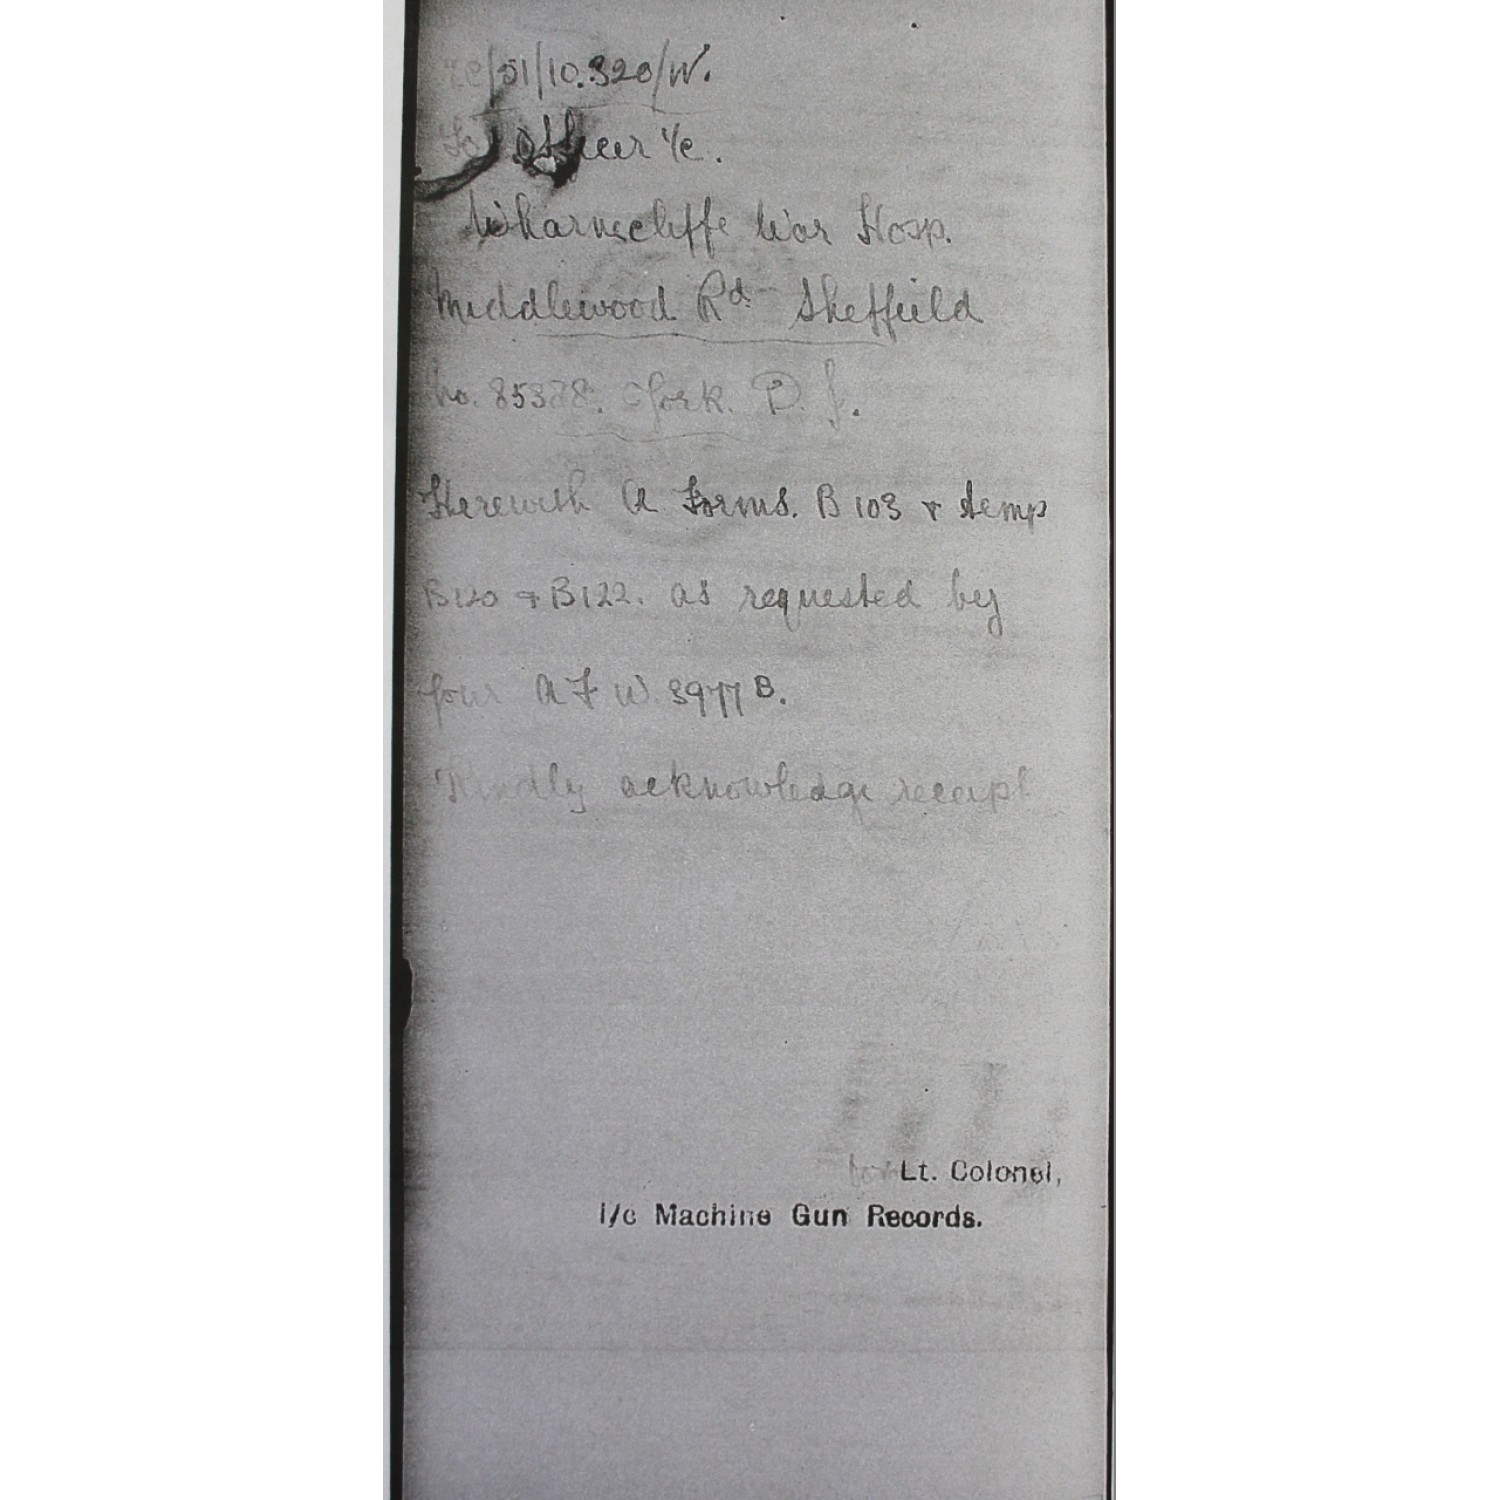 /51/10.320/W.
To Officer i/c.
Wharncliffe War Hosp.
Middlewood Rd. Sheffield
No. 85378. P. J.
Herewith A Forms. B 103 & temp
B120 & B122. as requested by
your A F W. 3977 B.
Kindly acknowledge receipt
for Lt. Colonel,
i/c Machine Gun Records.